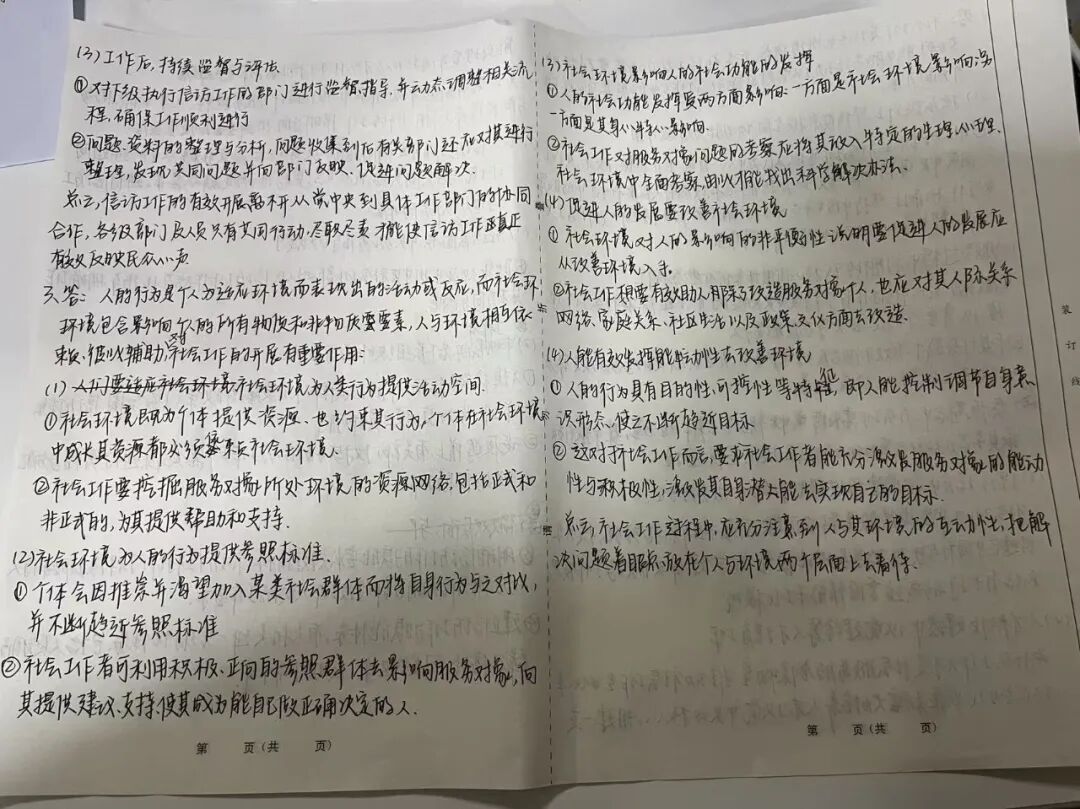 (3)工作后,持续监督与评估.
①对下级执行信访工作的部门进行监督、指导,并动态调整相关流
程,确保工作顺利进行
②问题、资料的整理与分析,问题收集到后有关部门还应对其进行
整理,发现共同问题并向部门反映、促进问题解决.
总之,信访工作的有效开展离不开从党中央到具体工作部门的协同
合作,各级部门及人员只有共同行动、尽职尽责才能使信访工作真正
有效反映民众心声
答:人的行为是个人为适应环境而表现出的活动或反应,而社会环
环境包含影响个人的所有物质和非物质要素,人与环境相互依
社会工作的开展有重要作用:
(1)社会环境为人类行为提供活动空间.
①社会环境既为个体提供资源、也约束其行为,个体在社会环境
中成长其资源都必须来自社会环境.
②社会工作要挖掘服务对象所处环境的资源网络,包括正式和
非正式的,为其提供帮助和支持.
(2)社会环境为人的行为提供参照标准.
①个体会因推崇并渴望加入某类社会群体而将自身行为与之对比,
并不断趋近参照标准
②社会工作者可利用积极、正向的参照群体去影响服务对象,向
其提供建议、支持,使其成为能自己做正确决定的人.
第 页(共 页)
(3)社会环境影响人的社会功能的发挥
①人的社会功能发挥受两方面影响:一方面是社会环境影响,另
一方面是其身心特点影响.
②社会工作对服务对象问题的考察应将其放入特定的生理、心理、
社会环境中全面考察,由此才能找出科学解决办法.
(4)促进人的发展要改善社会环境
①社会环境对人的影响的非平衡性说明要促进人的发展应
从改善环境入手.
②社会工作想要有效助人,除了改造服务对象个人,也应对其人际关系
网络、家庭关系、社区生活以及政策、文化方面去改造.
(4)人能有效发挥能动性去改善环境
①人的行为具有目的性、可控性等特征,即人能控制调节自身意
识形态、使之不断趋近目标
②这对于社会工作而言,要求社会工作者能充分激发服务对象的能动
性与积极性,激发其自身潜能去实现自己的目标.
总之,社会工作过程中,应充分注意到人与其环境的互动性,把解
决问题着眼点放在个人与环境两个层面上去看待.
第 页(共 页)
装
订
线